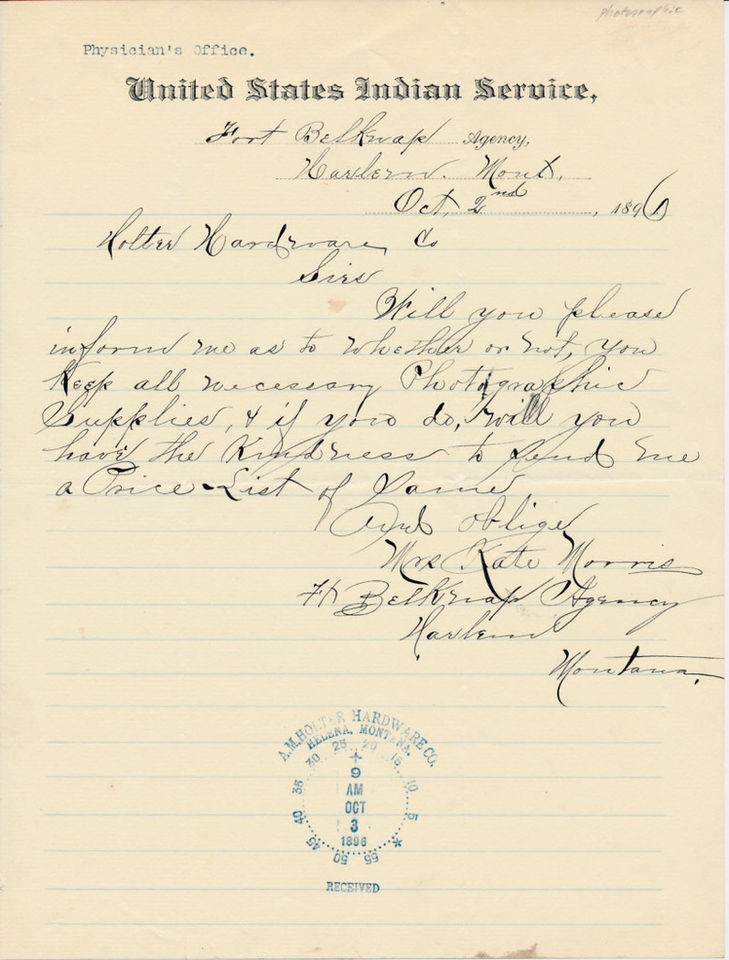 photographic
Physician's Office.
United States Indian Service,
Fort Belknap Agency,
Harlem. Mont.
Oct, 2nd, 1896
Holter Hardware Co
Sirs
Will you please
inform me as to whether or not, you
Keep all necessary Photographic
Supplies, & if you do, will you
have the Kindness to send me
a Price-List of Same
And oblige
Mrs Kate Morris
Ft Belknap Agency
Harlem
Montana.
A.M. HOLTER HARDWARE CO.
HELENA, MONTANA.
30 25 20 15
35 10
40 5
45 50 55
9
AM
OCT
3
1896
RECEIVED